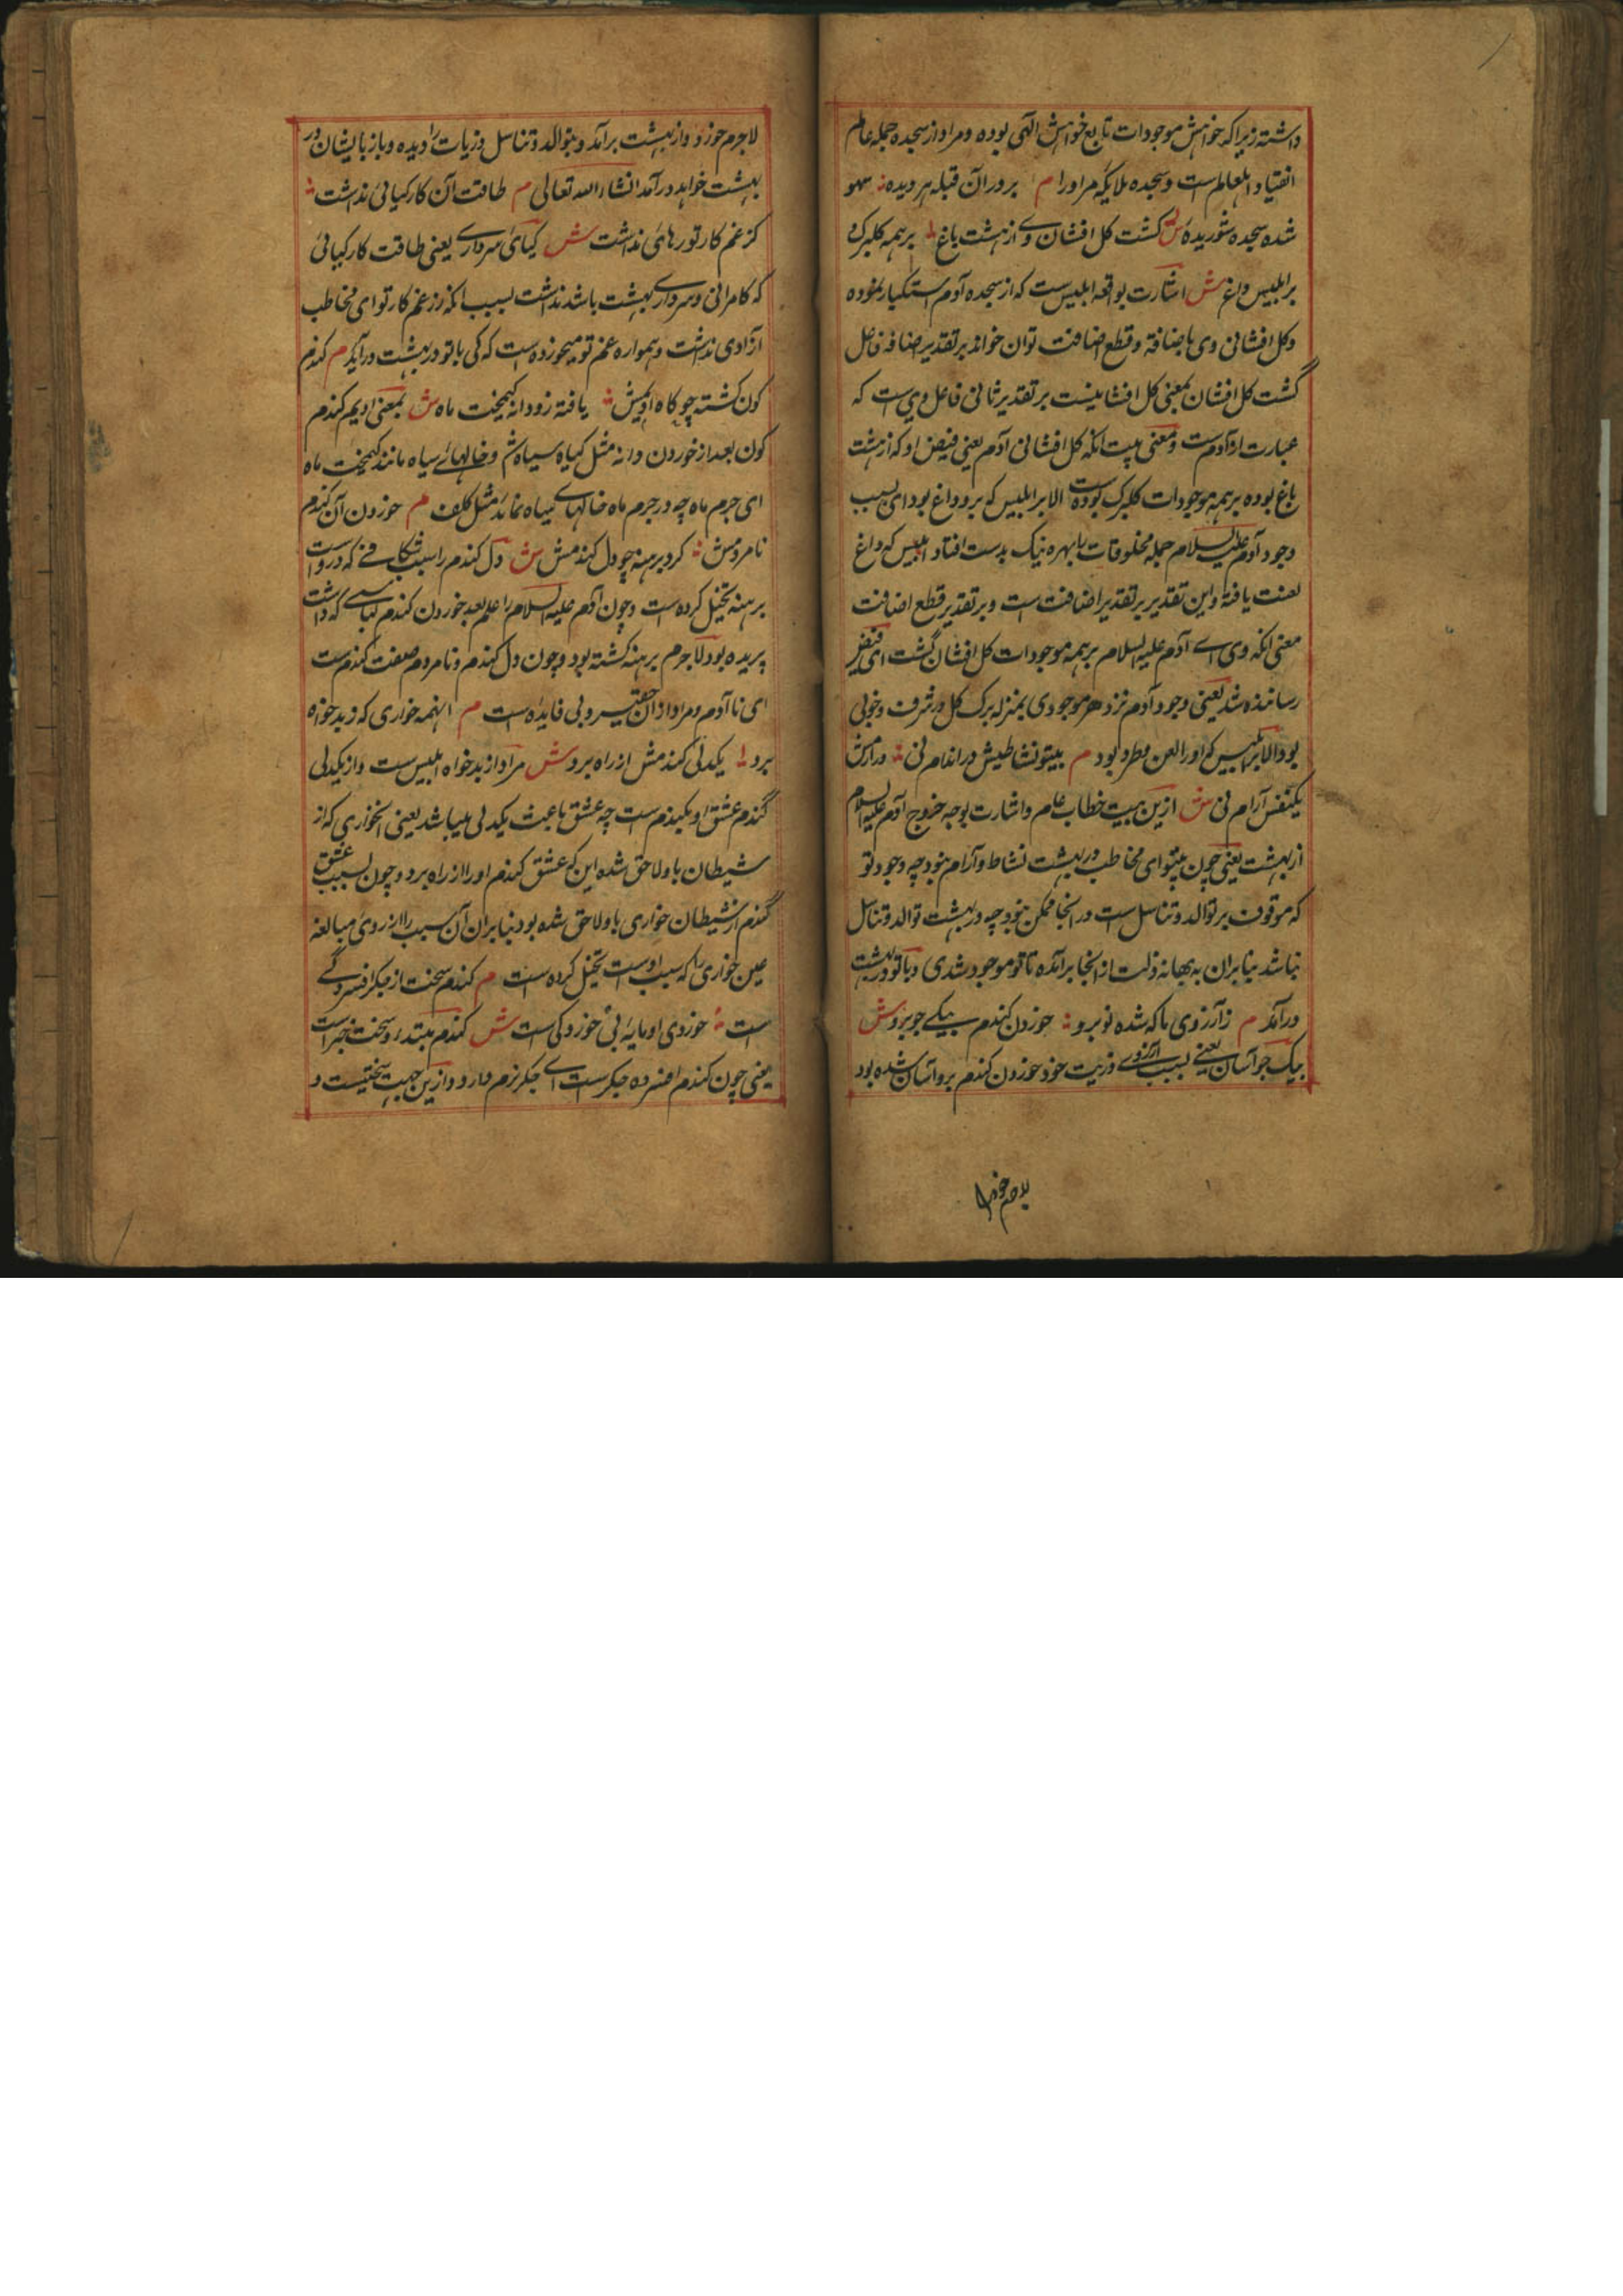 داشته زیرا که خواهش موجودات تابع خواهش الهی بوده و مراد از سجده جمله عالم
انقیاد اهل عالم است و سجده ملایکه مر او را م بر در آن قبله هر دیده سهو
شده سجده شوریده ش کشت کل افشان وی از هشت باغ بر همه کلبرک و
بر ابلیس داغ ش اشارت بواقعه ابلیس ست که از سجده آدم استکبار نموده
و کل افشانی وی باضافة و قطع اضافت توان خواند بر تقدیر اضافه فاعل
گشت کل افشان بمعنی کل افشانیست بر تقدیر ثانی فاعل وی است که
عبارت از آدم ست و معنی بیت انکه کل افشانی آدم یعنی فیض او که از هشت
باغ بوده بر همه موجودات کلبرک بوده است الا بر ابلیس که برو داغ بود ای بسبب
وجود آدم علیه السلام جمله مخلوقات را بهره نیک بدست افتاد ابلیس که داغ
لعنت یافته و این تقدیر بر تقدیر اضافت است و بر تقدیر قطع اضافت
معنی انکه وی ای آدم علیه السلام بر همه موجودات کل افشان گشت ای فیض
رساننده شد یعنی وجود آدم نزد هر موجودی بمنزله برک کل در شرف و خوبی
بود الا بر ابلیس که او را لعن و طرد بود م بیتو نشاطیش در اندام نی در ارمش
یکنفس آرام نی ش ازین بیت خطاب عام و اشارت بوجه خروج آدم علیه السلام
از بهشت یعنی چون بیتو ای مخاطب در بهشت نشاط و آرام نبود چه وجود تو
که موقوف بر توالد و تناسل ست در انجا ممکن نبود چه در بهشت توالد و تناسل
نباشد بنابران به بهانه ذلت از انجا برآمده تا تو موجود شدی و با تو در بهشت
درآمد م ز آرزوی ما که شده نو برو خوردن کندم بیکی جو برو ش
بیک جو آسان یعنی بسبب آرزوی ذریت خود خوردن کندم برو آسان شده بود
لاجرم خورد
لاجرم خورد و از بهشت برآمد و بتوالد و تناسل ذریات را دیده و باز بایشان در
بهشت خواهد درآمد انشاء الله تعالی م طاقت آن کار کیائی نداشت
کز غم کار تو رهائی نداشت ش کیائی سرداری یعنی طاقت کار کیائی
که کامرانی و سرداری بهشت باشد نداشت بسبب انکه از غم کار تو ای مخاطب
آزادی نداشت و همواره غم تو میخورده است که کی با تو در بهشت درآید م کندم
کون کشته چو کاه ادیمش یافته زو دانه کیمخت ماه ش بمعنی ادیم کندم
کون بعد از خوردن دانه مثل کیاه سیاه ش و خالهائے سیاه مانند کیمخت ماه
ای جرم ماه چه در جرم ماه خالهای سیاه نماید مثل کلف م خوردن آن کندم
نامردمش کرد برهنه چو دل کندمش ش دل کندم را بسبب شکافے که در و است
برهنه تخیل کرده است و چون آدم علیه السلام را علم بعد خوردن کندم لباسے که داشت
پریده بود لاجرم برهنه کشته بود و چون دل کندم و نامردم صفت کندم ست
ای نا آدم و مراد از ان حقیر و بی فایده است م اینهمه خواری که ز بدخواه
برد یکدلی کندمش از راه برد ش مراد از بدخواه ابلیس ست و از یکدلی
گندم عشق او بکندم ست چه عشق باعث یکدلی میباشد یعنی انخواری که از
شیطان باو لاحق شده این که عشق کندم او را از راه برد و چون بسبب عشق
گندم از شیطان خواری باو لاحق شده بود بنابران آن سبب را از روی مبالغه
عین خواری را که سبب اوست تخیل کرده ست م کندم سخت از جکر افسردگے
است خوردی او مایه بی خوردکی است ش کندم مبتدا و سخت خبر است
یعنی چون کندم افسرده جکر ست اے جکر نرم دارد و ازین جهت سختیست و